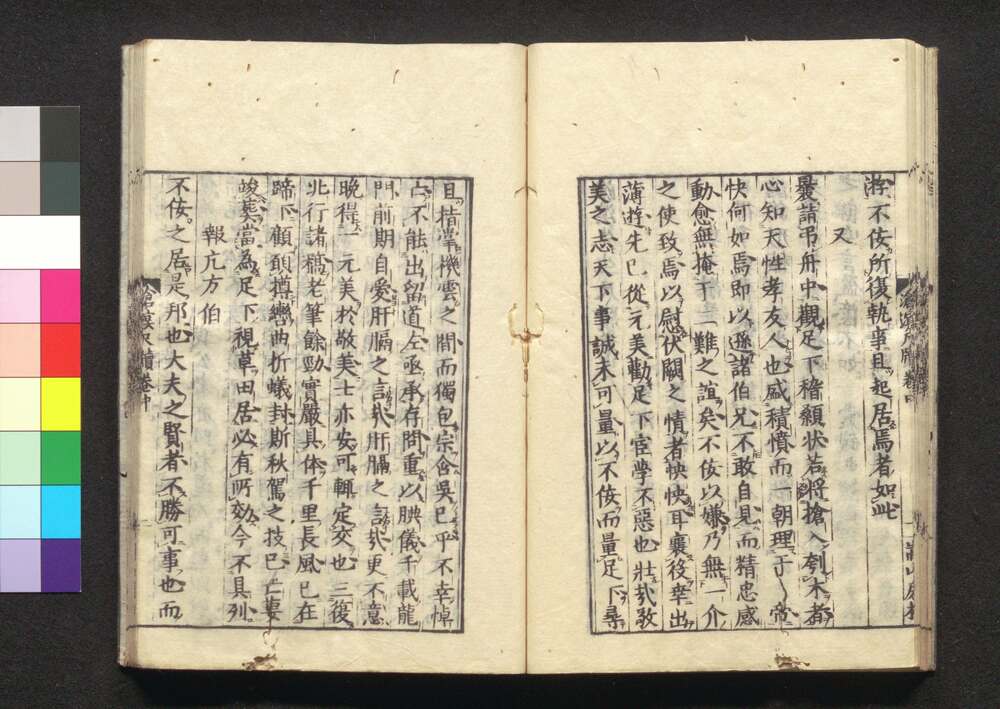 不佞所復執事且起居焉者如此
又
曩請弔舟中觀足下稽顙状若將搶入刳木者
心知天性孝友人也盛積憤而一朝理于帝
快何如焉即以遜諸伯兄不敢自見而精忠感
動愈無掩于二難之誼矣不佞以嫌乃無一介
之使致焉以慰伏闕之情者怏怏耳襄役幸出
薄遊先已從元美勸足下宦學不惡也壯哉敎
美之志天下事誠未可量以不佞而量足下尋
且楷掌機雲之間而獨包宗含吳已乎不幸悼
亡不能出留道左亟承存問重以腆儀千載龍
門前期自愛肝膈之言哉肝膈之言哉更不意
晚得一元美於敬美士亦安可輒定交也三復
北行諸稿老筆餘勁實嚴具体千里長風已在
蹄下顧頗摶轡曲折蟻封斯秋駕之技已亡婁
竣葵當為足下視草田居必有所効今不具列
報亢方伯
不佞之居是邦也大夫之賢者不勝可事也而
滄溟尺牘卷中